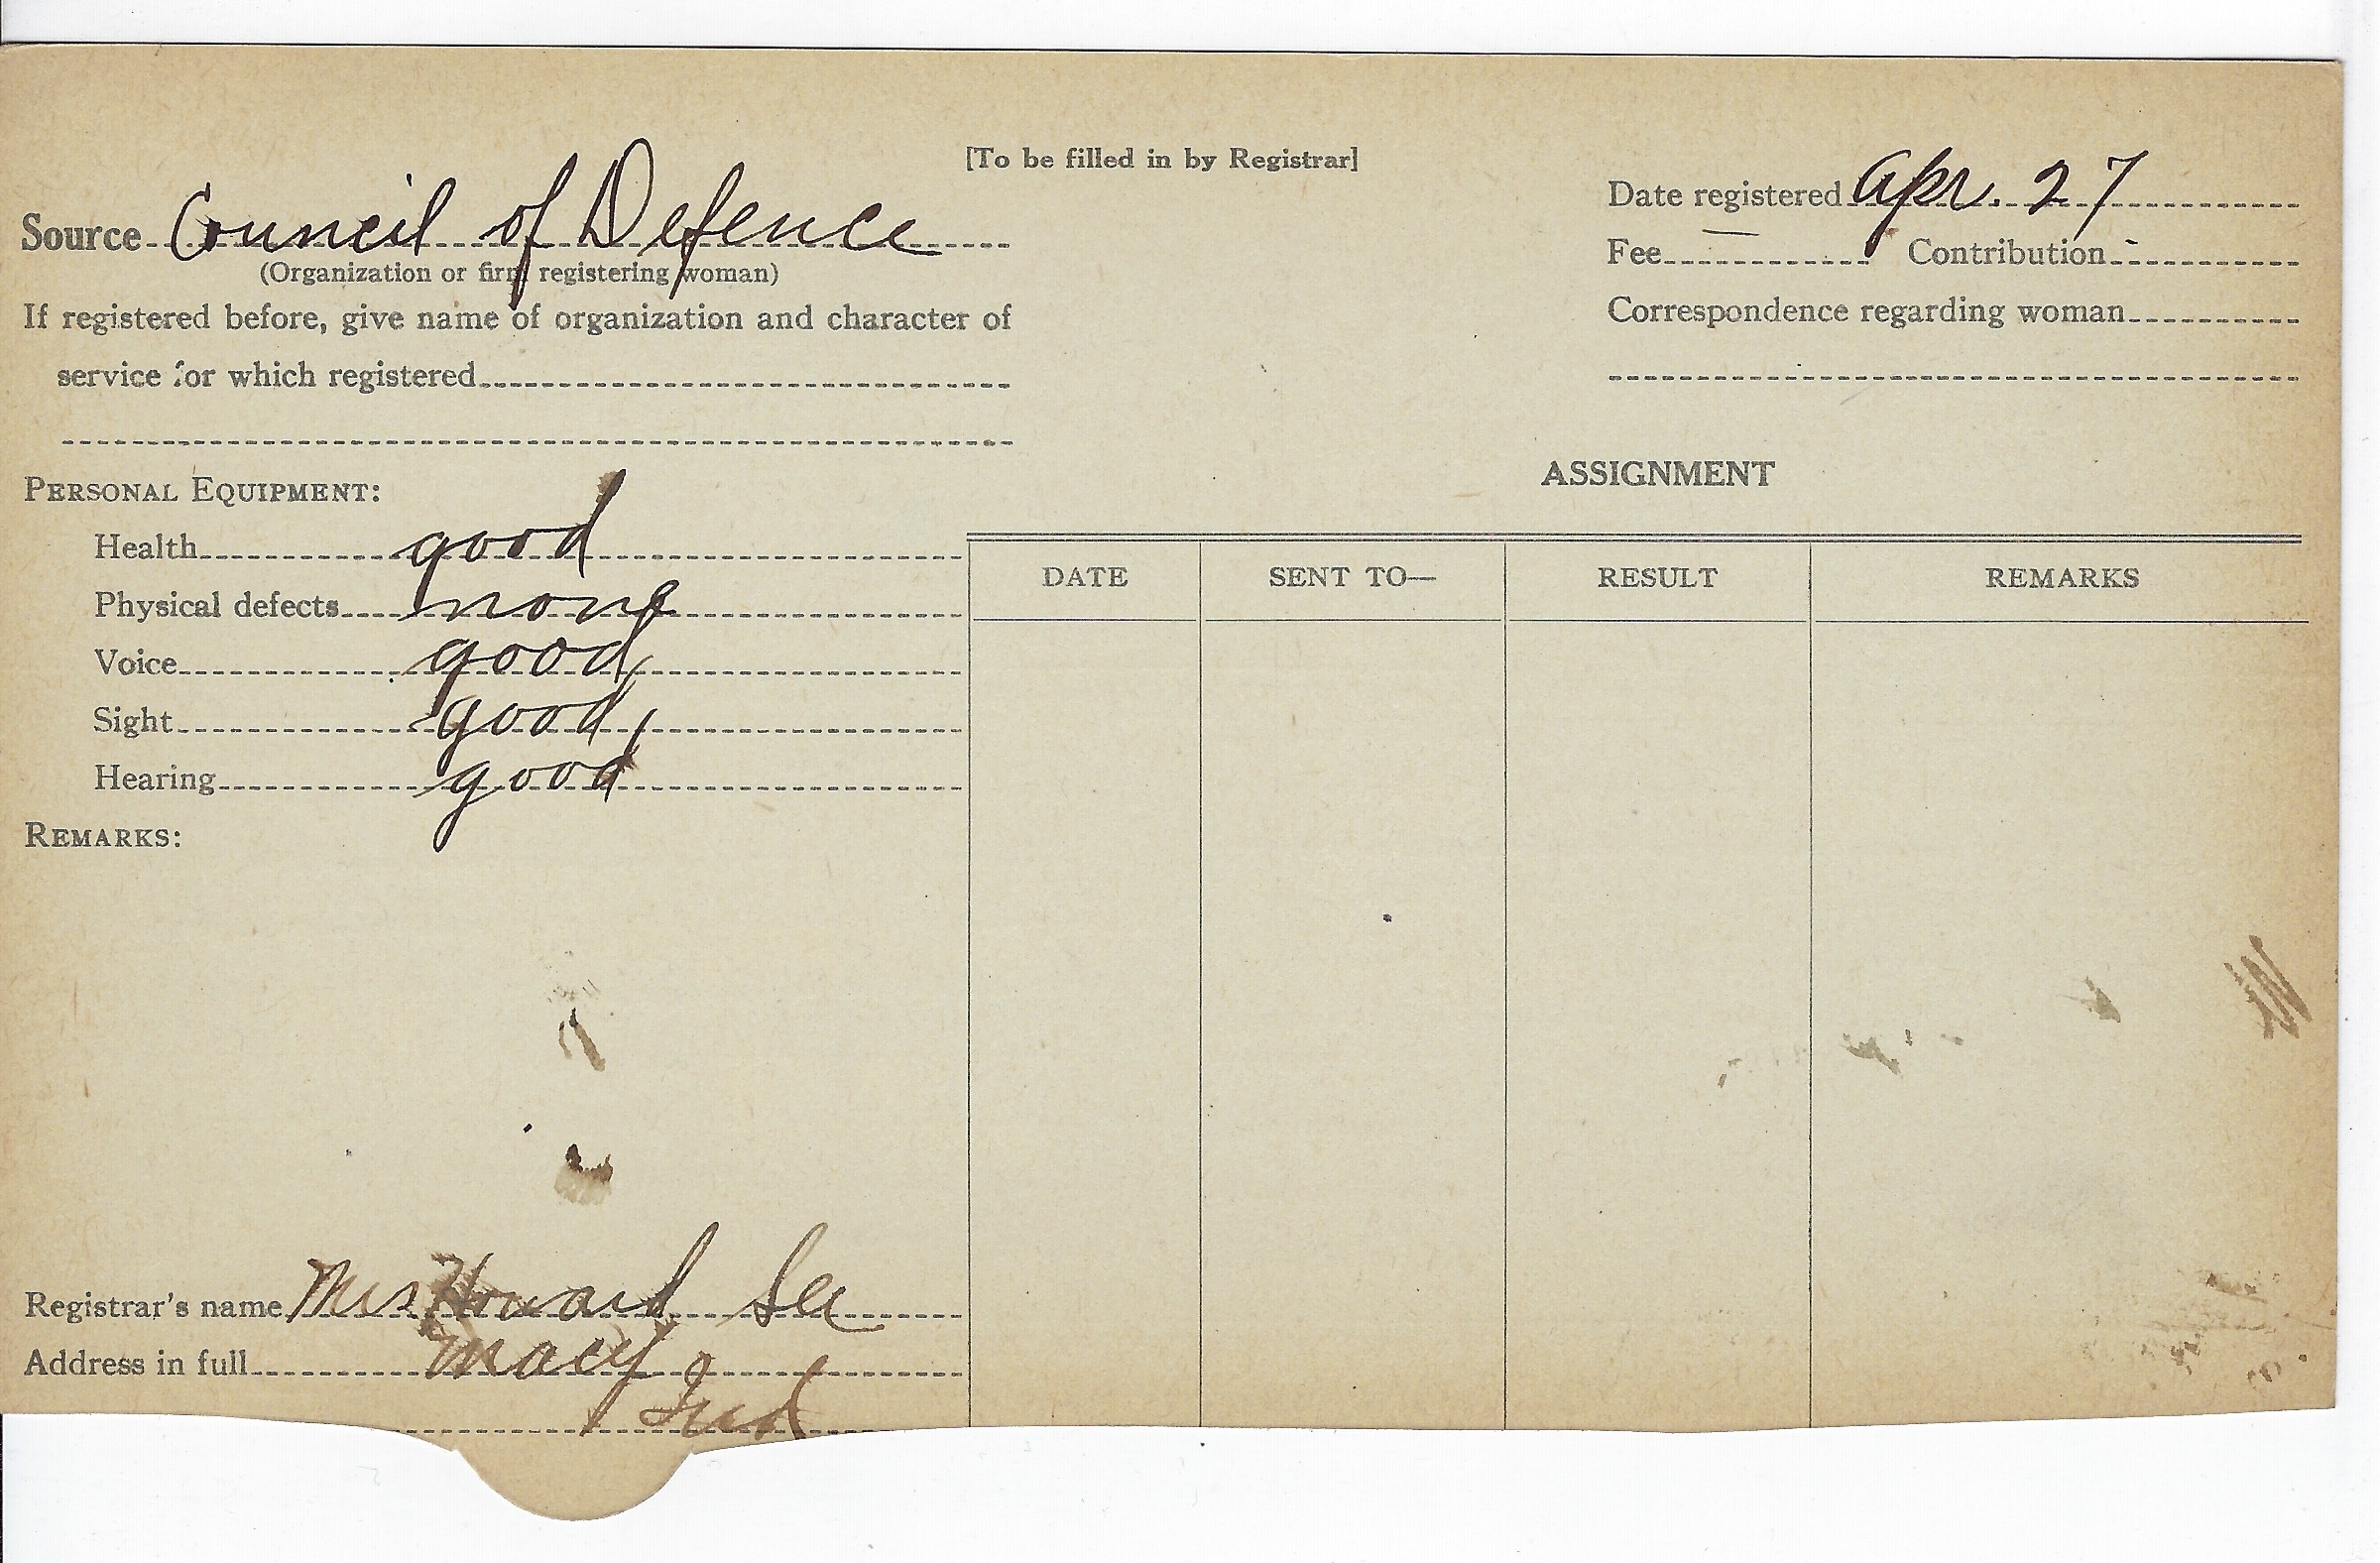 [To be filled in by Registrar]
Source Council of Defence
(Organization or firm registering woman)
If registered before, give name of organization and character of
service for which registered
Date registered Apr. 27
Fee — Contribution -
Correspondence regarding woman
PERSONAL EQUIPMENT:
Health good
Physical defects none
Voice good
Sight good
Hearing good
REMARKS:
ASSIGNMENT
DATE SENT TO— RESULT REMARKS
Registrar's name Mrs Howard See
Address in full Macy
Ind